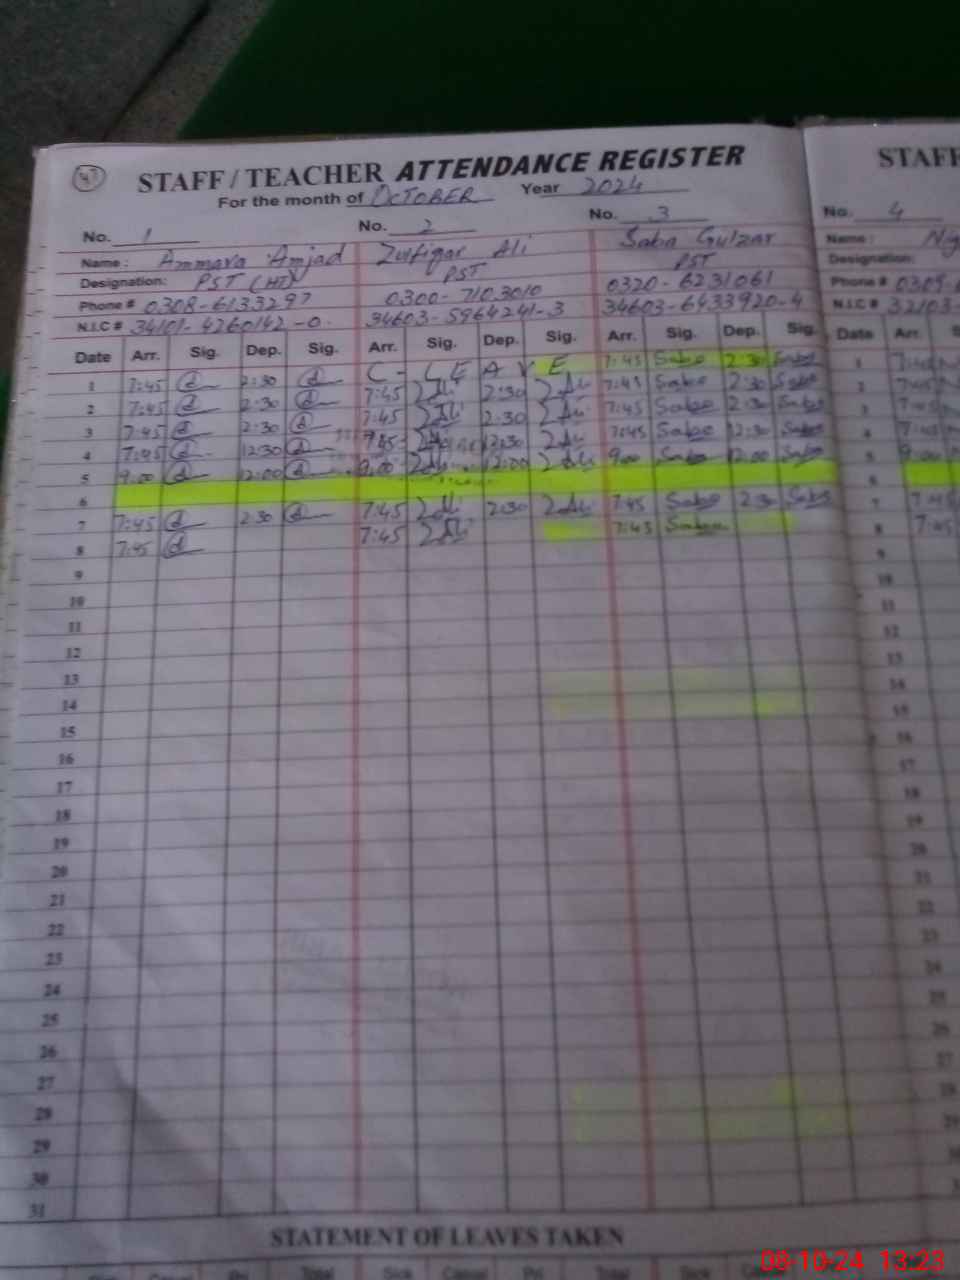 47
STAFF / TEACHER ATTENDANCE REGISTER
For the month of OCTOBER Year 2024
No. 1 No. 2 No. 3
Name : Ammara Amjad Zulfiqar Ali Saba Gulzar
Designation: PST (HT) PST PST
Phone # 0308-6133297 0300-7103010 0320-6231061
N.I.C # 34101-4260142-0 34603-5964241-3 34603-6433920-4
Date Arr. Sig. Dep. Sig. Arr. Sig. Dep. Sig. Arr. Sig. Dep. Sig.
1 7:45 2:30 C-LEAVE 7:45 Saba 2:30 Saba
2 7:45 2:30 7:45 2:30 7:45 Saba 2:30 Saba
3 7:45 2:30 7:45 2:30 7:45 Saba 2:30 Saba
4 7:45 12:30 7:45 12:30 7:45 Saba 12:30 Saba
5 9:00 12:00 9:00 12:00 9:00 Saba 12:00 Saba
6
7 7:45 2:30 7:45 2:30 7:45 Saba 2:30 Saba
8 7:45 7:45 7:45 Saba
9
10
11
12
13
14
15
16
17
18
19
20
21
22
23
24
25
26
27
28
29
30
31
STATEMENT OF LEAVES TAKEN
STAFF
No. 4
Name :
Designation:
Phone # 0309-
N.I.C # 32103-
Date Arr.
1 7:45
2 7:45
3 7:45
4 7:45
5 9:00
6
7 7:45
8 7:45
9
10
11
12
13
14
15
16
17
18
19
20
21
22
23
24
25
26
27
28
29
08-10-24 13:23